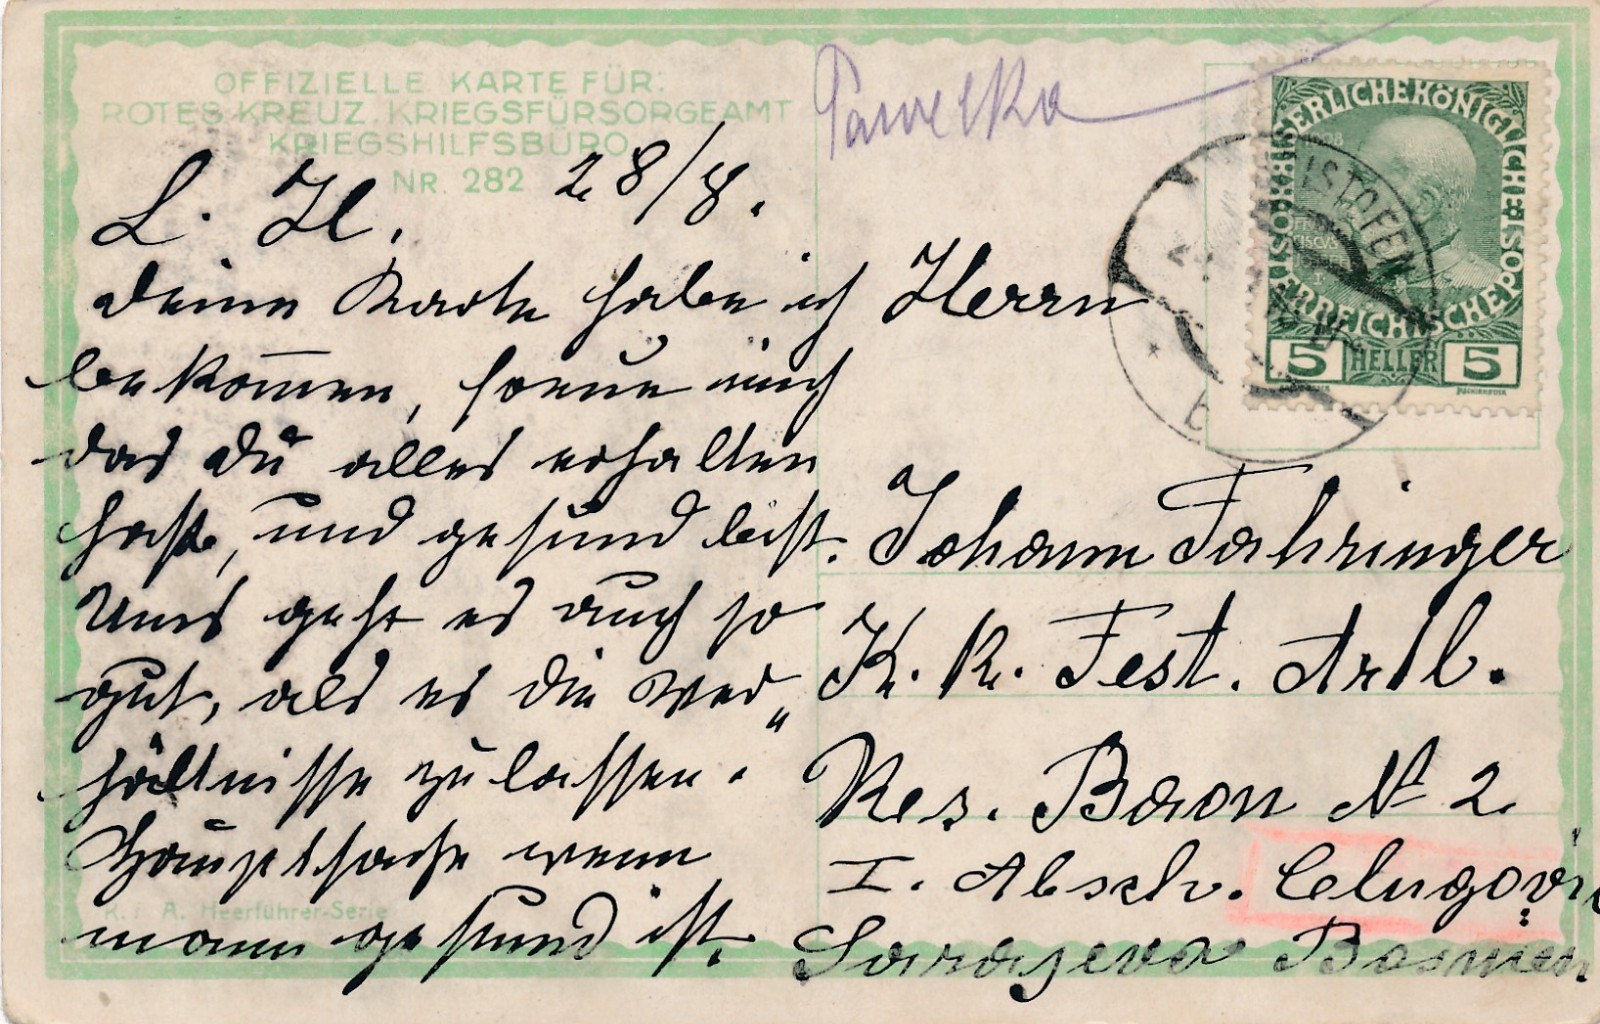 OFFIZIELLE KARTE FÜR:
ROTES KREUZ, KRIEGSFÜRSORGEAMT
KRIEGSHILFSBÜRO
NR. 282
L. H. 28/8.
deine Karte habe ich
bekom̅en, freue mich
das du alles erhalten
hast, und gesund bist.
Uns geht es auch so
gut, als es die Ver„
hältnisse zulassen.
Hauptsache wenn
man gesund ist.
K. F. A. Heerführer-Serie
Pawelka
KAISERLICHE KÖNIGLICHE
ÖSTERREICHISCHE POST
5 HELLER 5
b
Herrn
Johann Fahringer
K. k. Fest. Artl.
Res. Baon № 2
I. Absch.
Sarajevo Bosnien